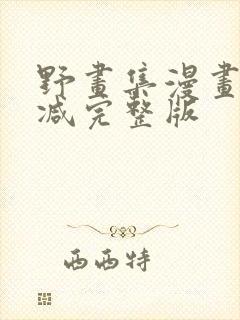 野畫集漫畫
减完整版
西西特